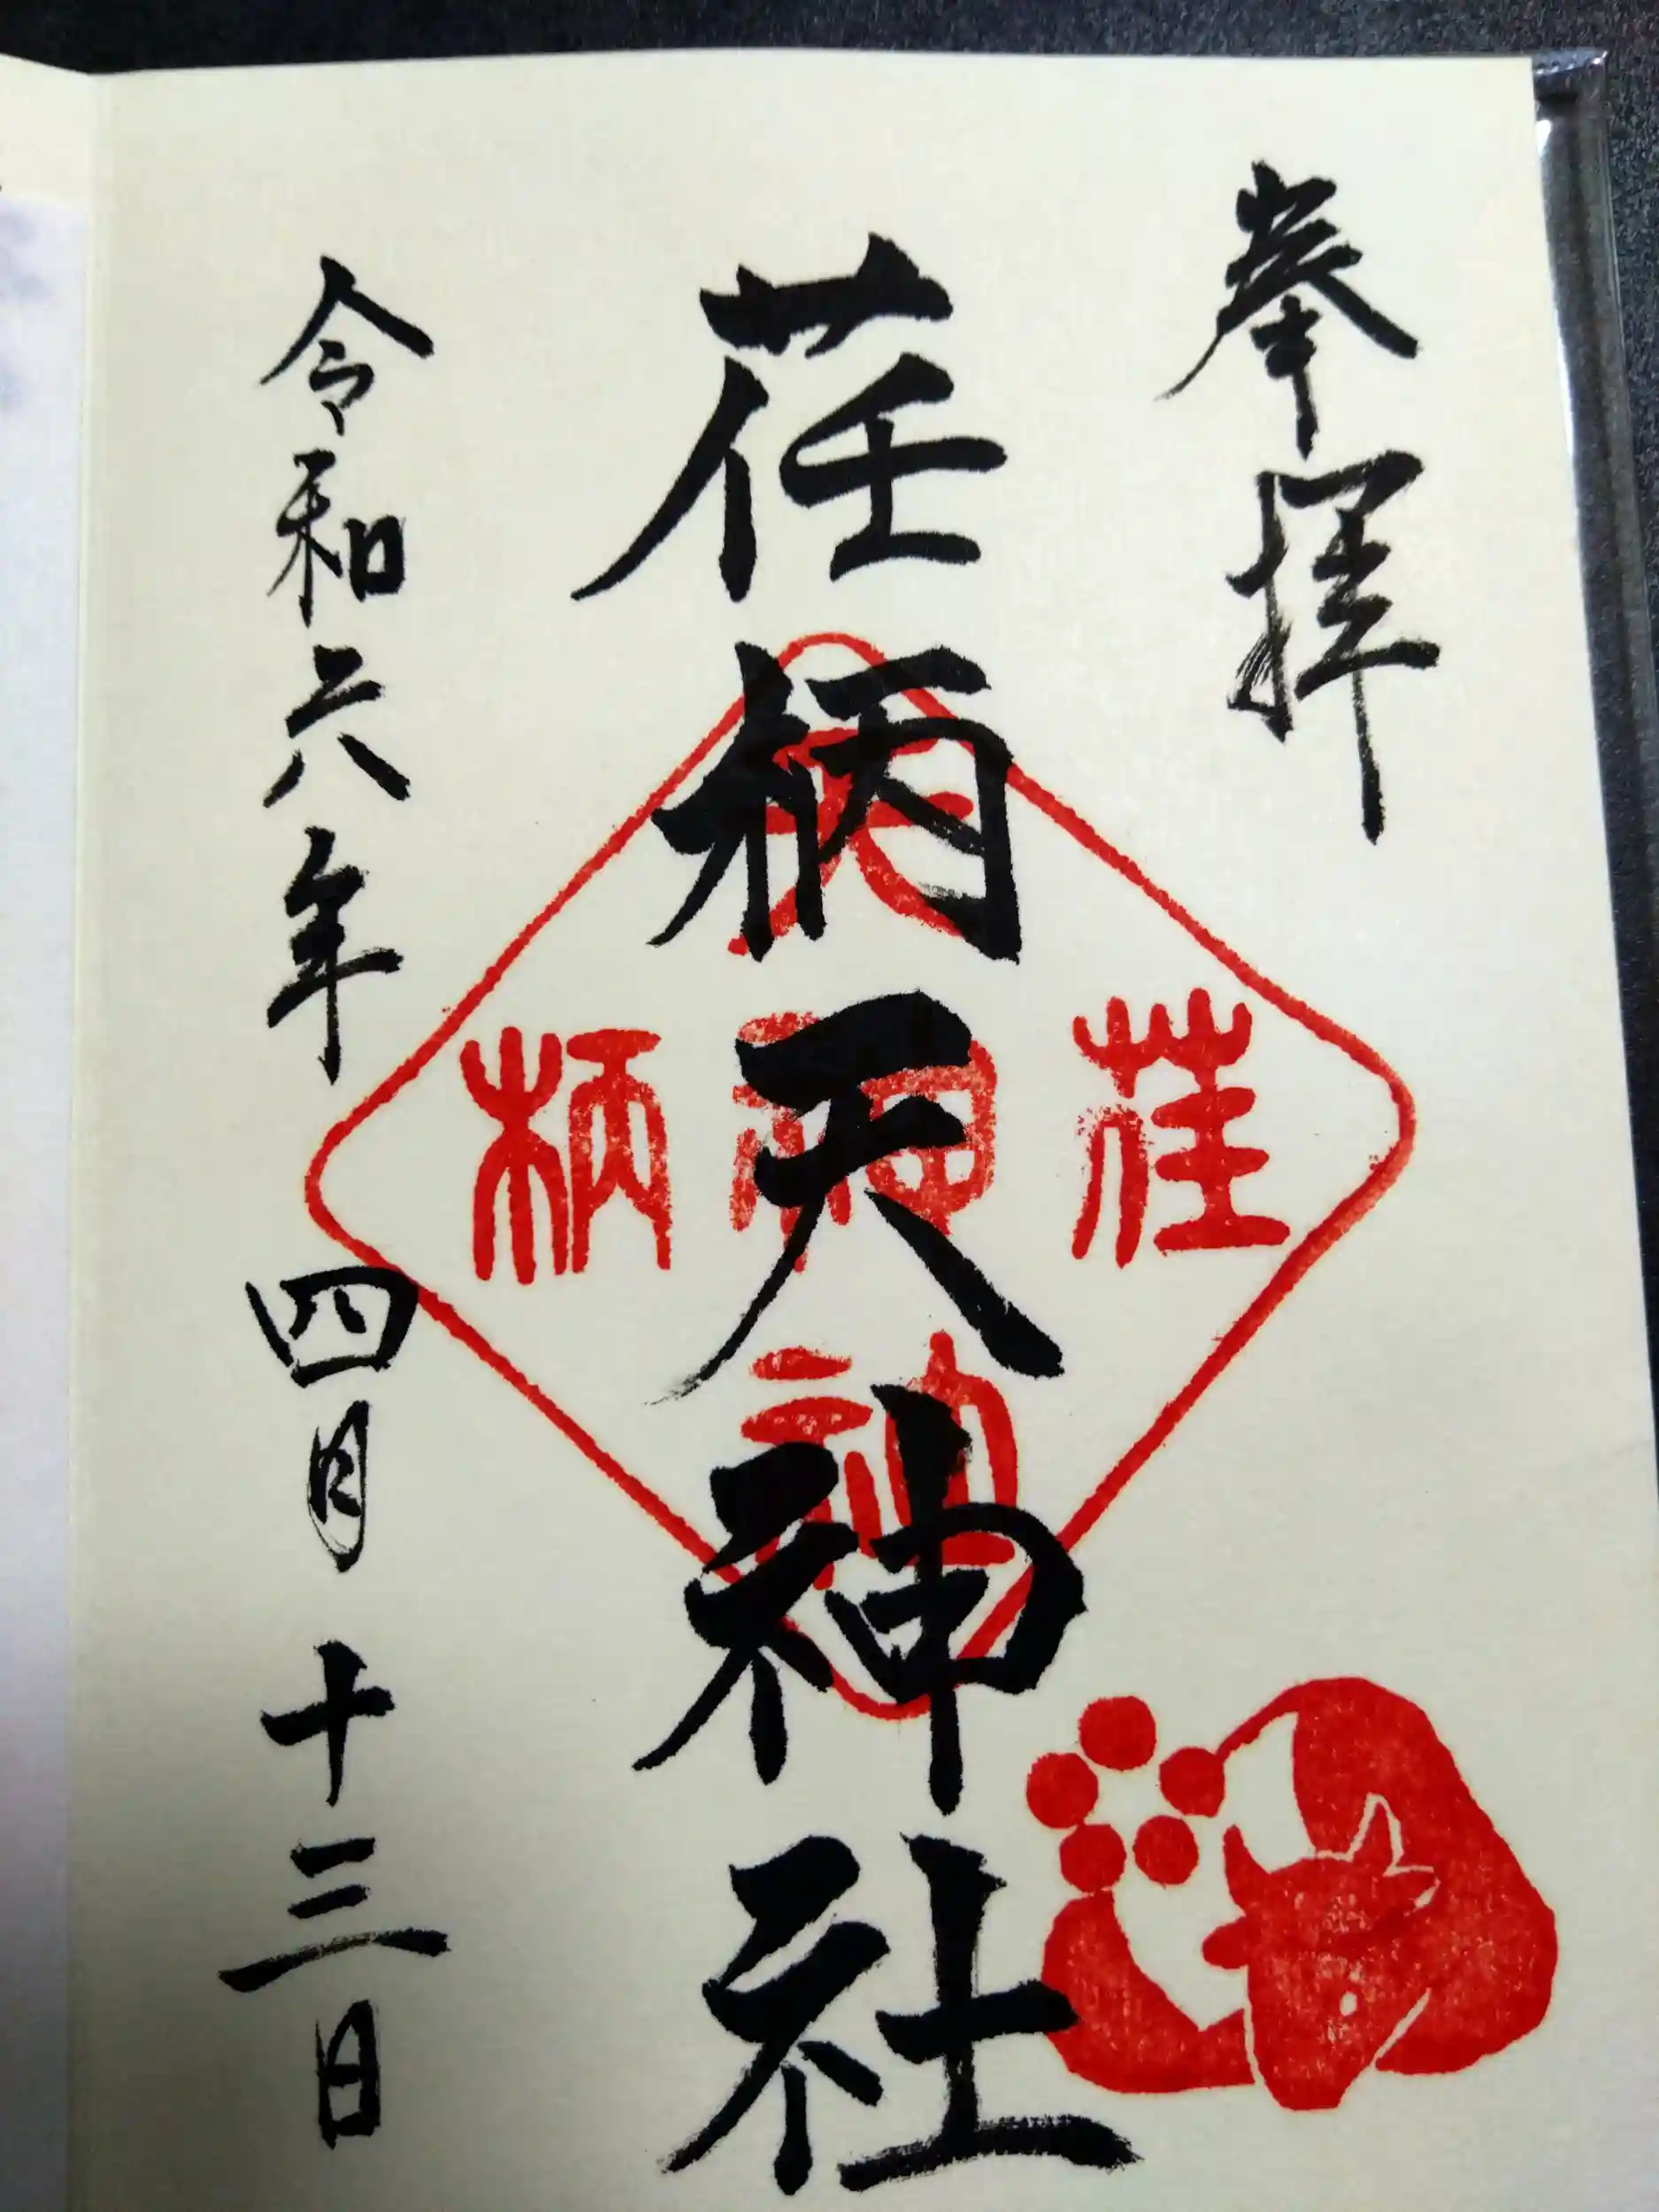 奉拝
荏柄天神社
令和六年四月十三日
荏
柄
天
神
社